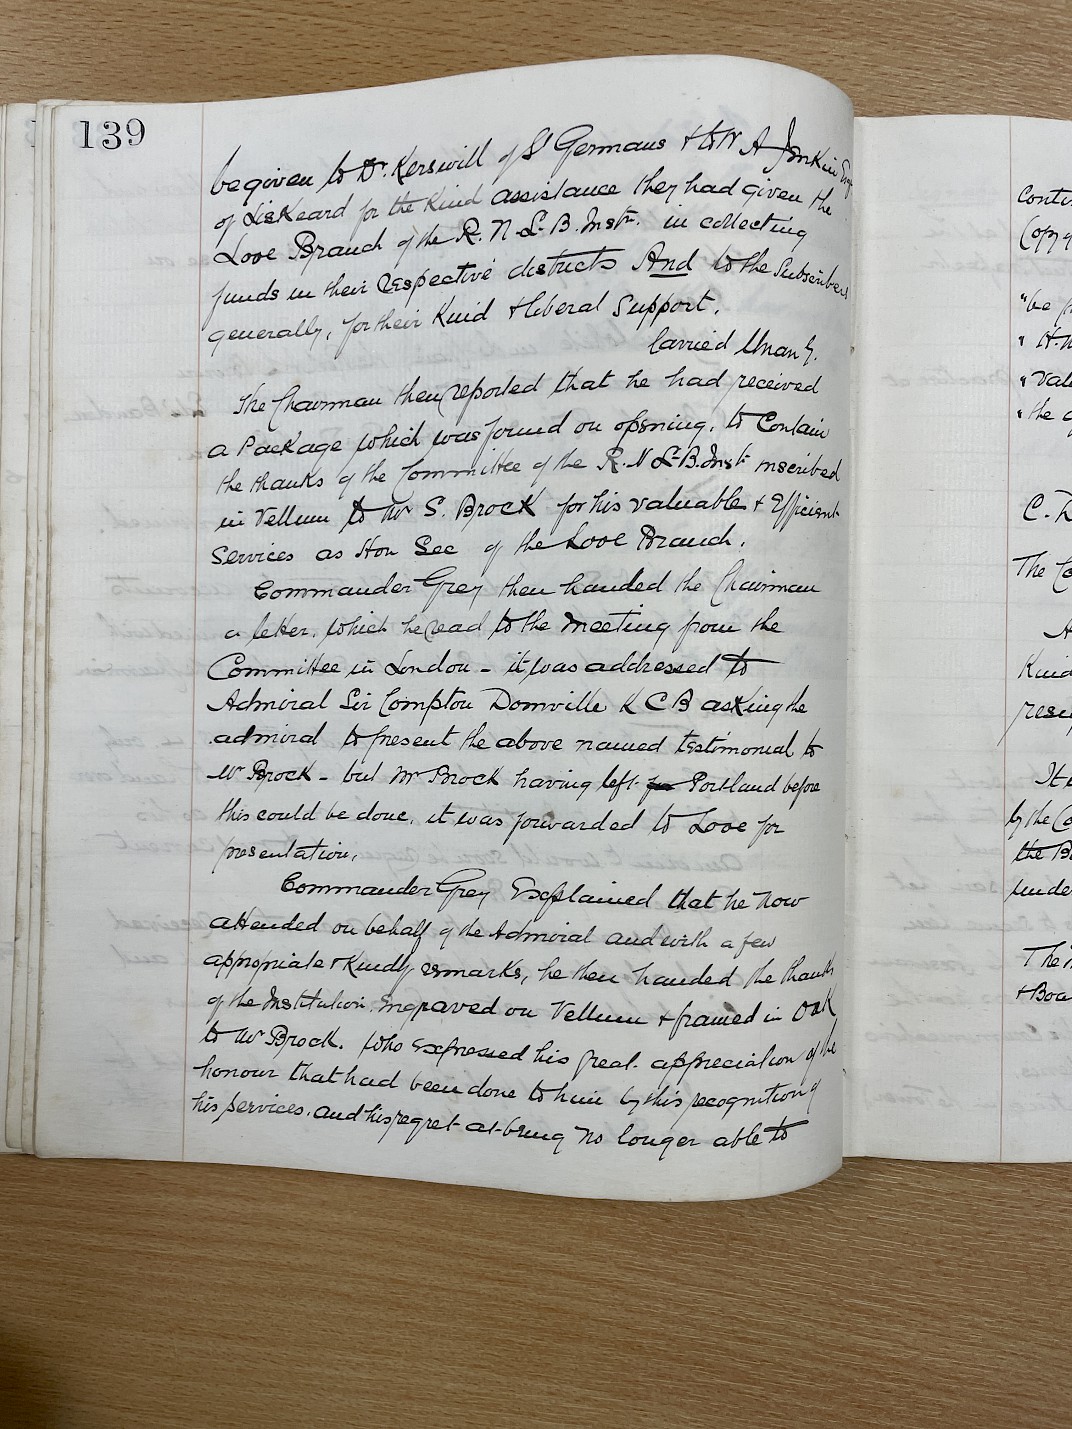 139
be given to Dr. Kerswill of St Germans & to W A Jenkin Esqr
of Liskeard for the Kind assistance they had given the
Looe Branch of the R. N. L-B. Instn. in collecting
funds in their respective districts And to the Subscribers
generally, for their Kind & liberal Support.
Carried Unany.
The Chairman then reported that he had received
a Package which was found on opening, to Contain
the thanks of the Committee of the R. N L-B. Instn inscribed
in Vellum to Mr S. Brock for his valuable & Efficient
Services as Hon Sec of the Looe Branch.
Commander Grey then handed the Chairman
a letter, which he read to the meeting from the
Committee in London - it was addressed to
Admiral Sir Compton Domville K C B asking the
admiral to present the above named testimonial to
Mr Brock - but Mr Brock having left for Portland before
this could be done, it was forwarded to Looe for
presentation.
Commander Grey Explained that he now
attended on behalf of the Admiral and with a few
appropriate & Kindly remarks, he then handed the thanks
of the Institution, Engraved on Vellum & framed in Oak
to Mr Brock. who expressed his great appreciation of the
honour that had been done to him by this recognition of
his services, and his regret at being no longer able to
Copy
"be
C. D
The Co
Kind
by the Co
the B
unde
+ Boa